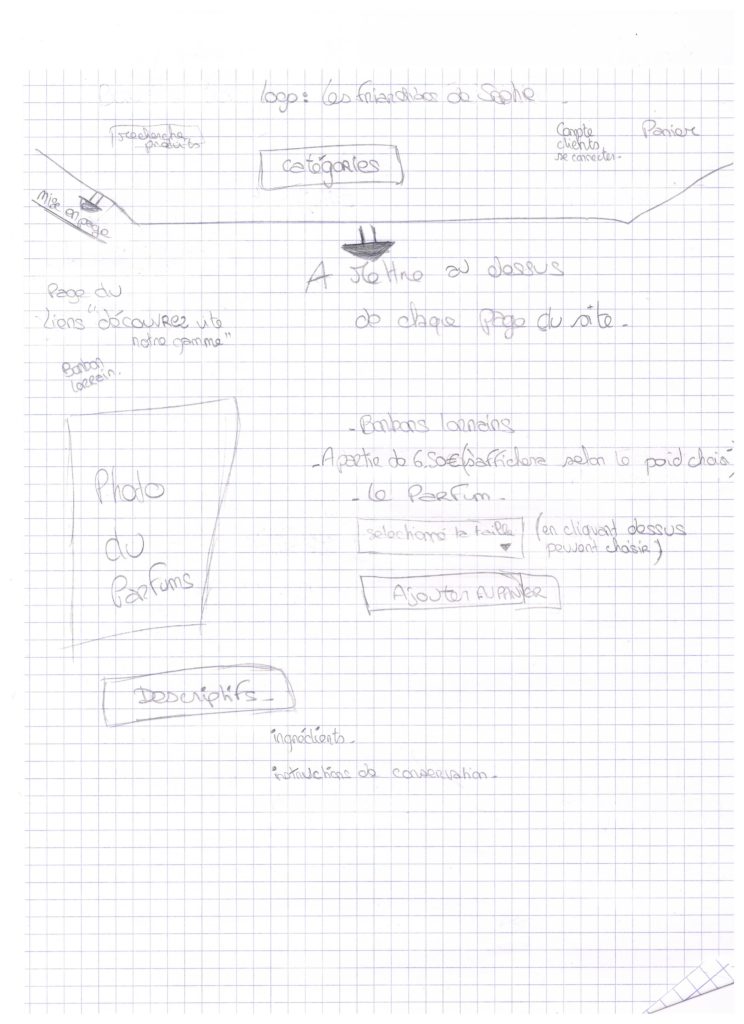 logo: Les friandises de Sophie
recherche
produits
Compte
clients
se connecter.
Panier
catégories
mise en page
A Mettre au dessus
de chaque page du site.
Page du
liens "découvrez vite
notre gamme"
Bonbon
lorrain.
- Bonbons lorrains
- A partir de 6.50€ (s'affichera selon le poid choisi)
- le Parfum.
Photo
du
Parfums
selectionné la taille
(en cliquant dessus
peuvent choisir)
Ajouter AU PANIER
Descriptifs.
ingrédients.
instructions de conservation.